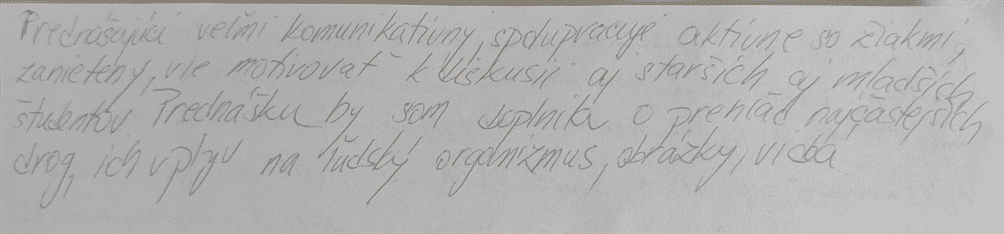 Prednášajúci veľmi komunikatívny, spolupracuje aktívne so žiakmi,
zanietený, vie motivovať k diskusii aj starších aj mladších
študentov Prednášku by som doplnila o prehľad najčastejších
drog, ich vplyv na ľudský organizmus, obrázky, videá